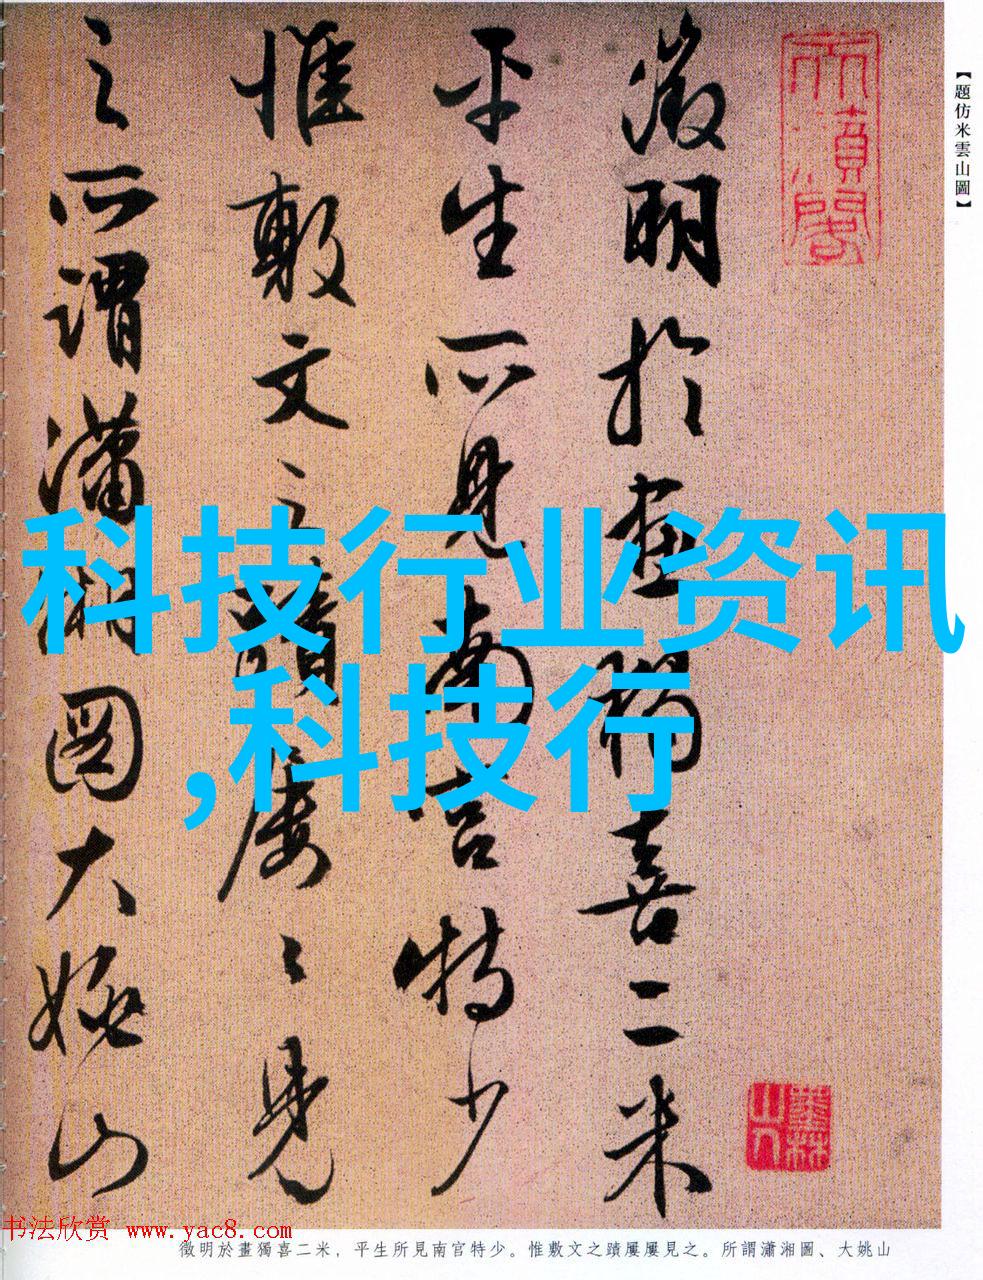 【題仿米雲山圖】
六瀆閣
徵明於畫獨喜二米
平生所見南宮特少
惟敷文之蹟屢〻見
之所謂瀟湘圖大姚山
墨林山人
科技行业资讯
,科技行
书法欣赏 www.yac8.com
徵明於畫獨喜二米，平生所見南宮特少。惟敷文之蹟屢屢見之。所謂瀟湘圖、大姚山